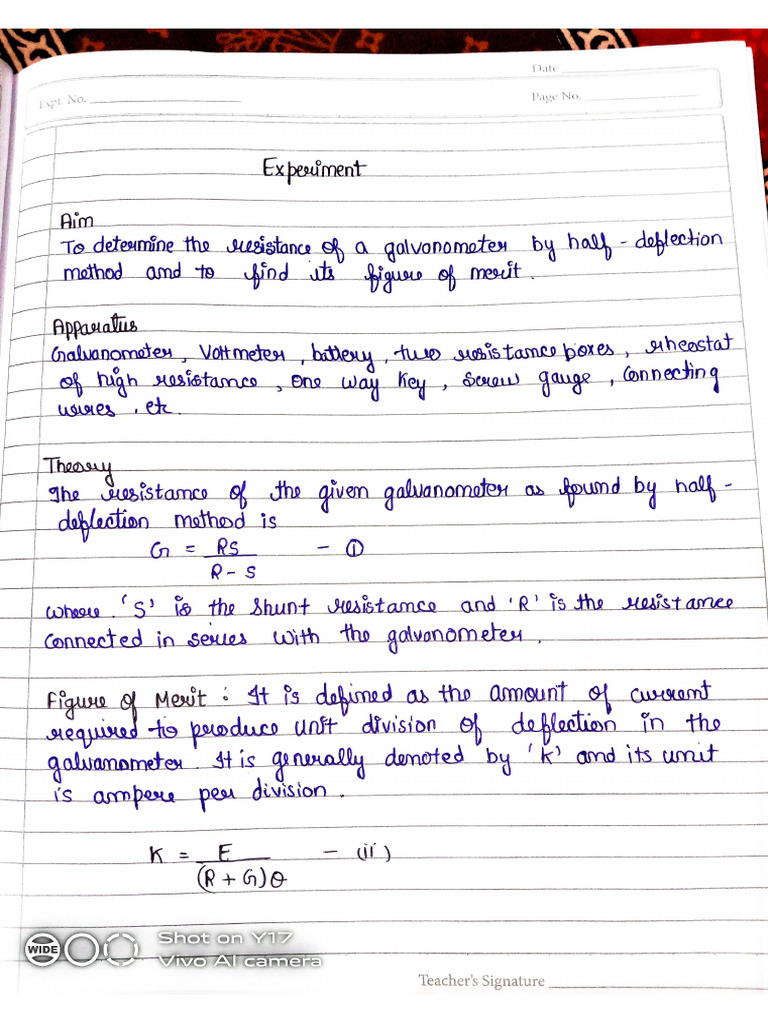 Date
Expt. No.
Page No.
Experiment
Aim
To determine the resistance of a galvanometer by half-deflection
method and to find its figure of merit.
Apparatus
Galvanometer, Voltmeter, battery, two resistance boxes, rheostat
of high resistance, one way key, screw gauge, connecting
wires, etc.
Theory
The resistance of the given galvanometer as found by half-
deflection method is
G = RS / R - S - ①
where 'S' is the shunt resistance and 'R' is the resistance
connected in series with the galvanometer.
Figure of Merit : It is defined as the amount of current
required to produce unit division of deflection in the
galvanometer. It is generally denoted by 'K' and its unit
is ampere per division.
K = E / (R + G)θ - (ii)
WIDE
Shot on Y17
Vivo AI camera
Teacher's Signature